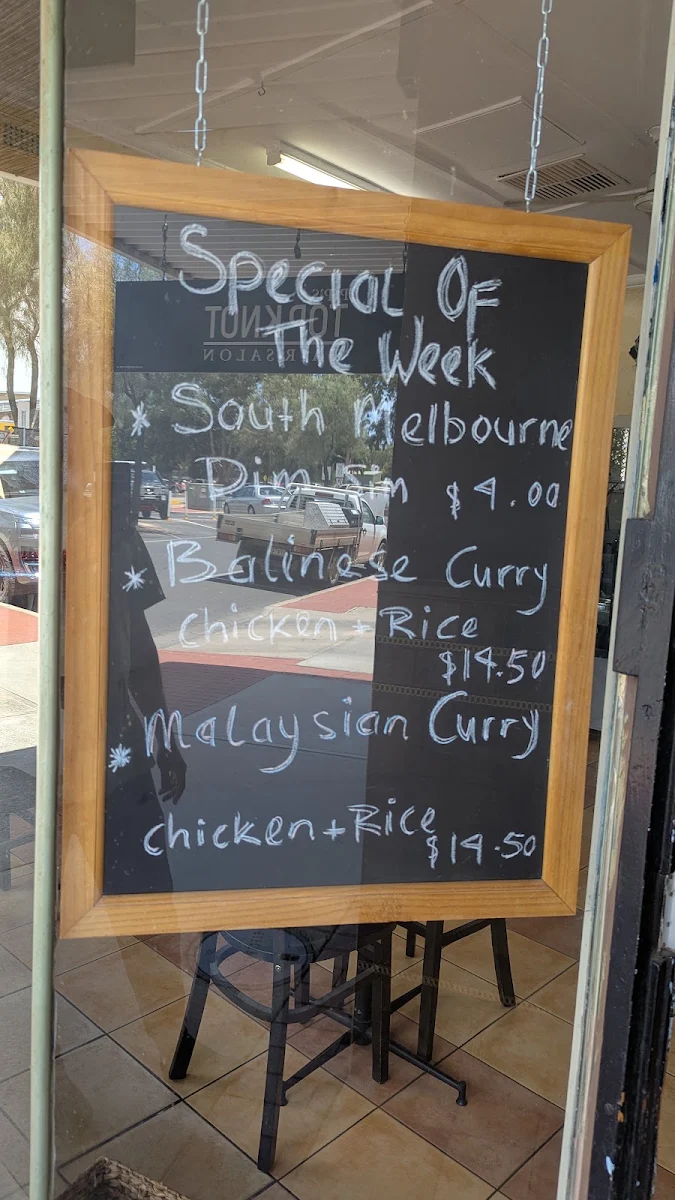 Special Of
The Week
* South Melbourne
Dim Sim $4.00
* Balinese Curry
chicken + Rice
$14.50
* Malaysian Curry
chicken + Rice
$14.50
TOPKNOT
HAIR SALON